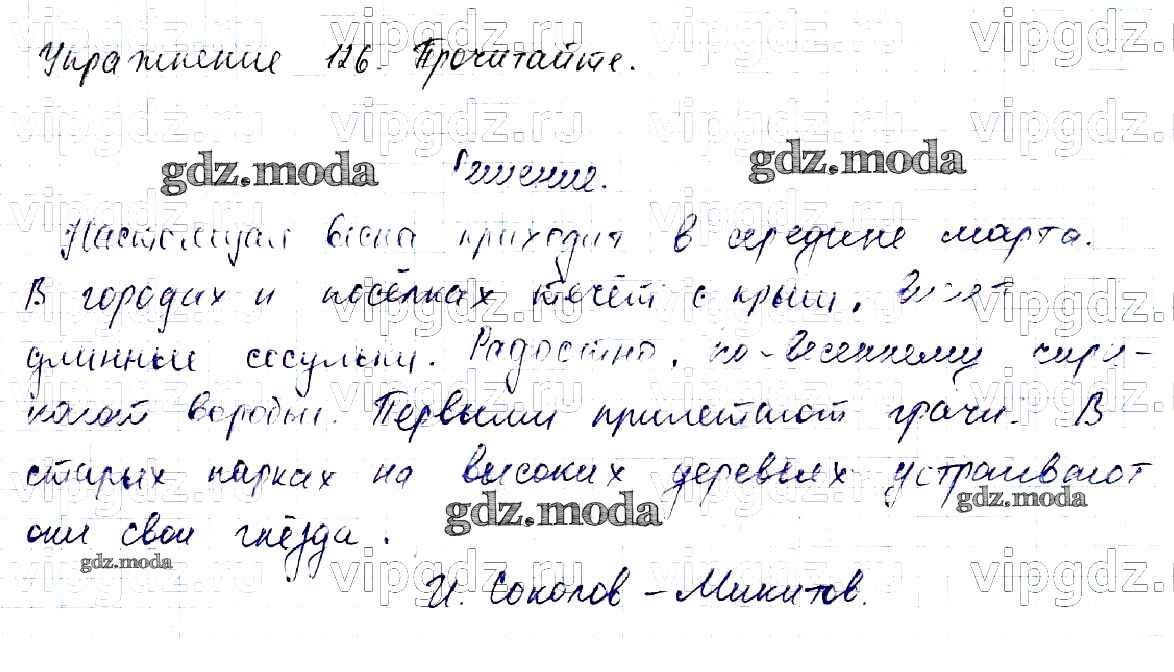 Упражнение 126. Прочитайте.
Решение.
Настоящая весна приходит в середине марта.
В городах и посёлках течёт с крыш,
длинные сосульки. Радостно, по-весеннему чири-
кают воробьи. Первыми прилетают грачи. В
старых парках на высоких деревьях устраивают
они свои гнёзда.
И. Соколов-Микитов.
gdz.moda
gdz.moda
gdz.moda
gdz.moda
gdz.moda
vipgdz.ru